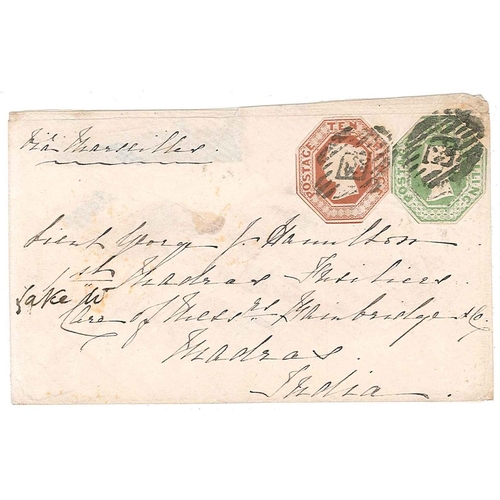 via Marseilles
POSTAGE TEN
POSTAGE
Lieut George J. Hamilton
1st Madras Fusiliers
Care of Messrs Bainbridge & Co.
Madras
India